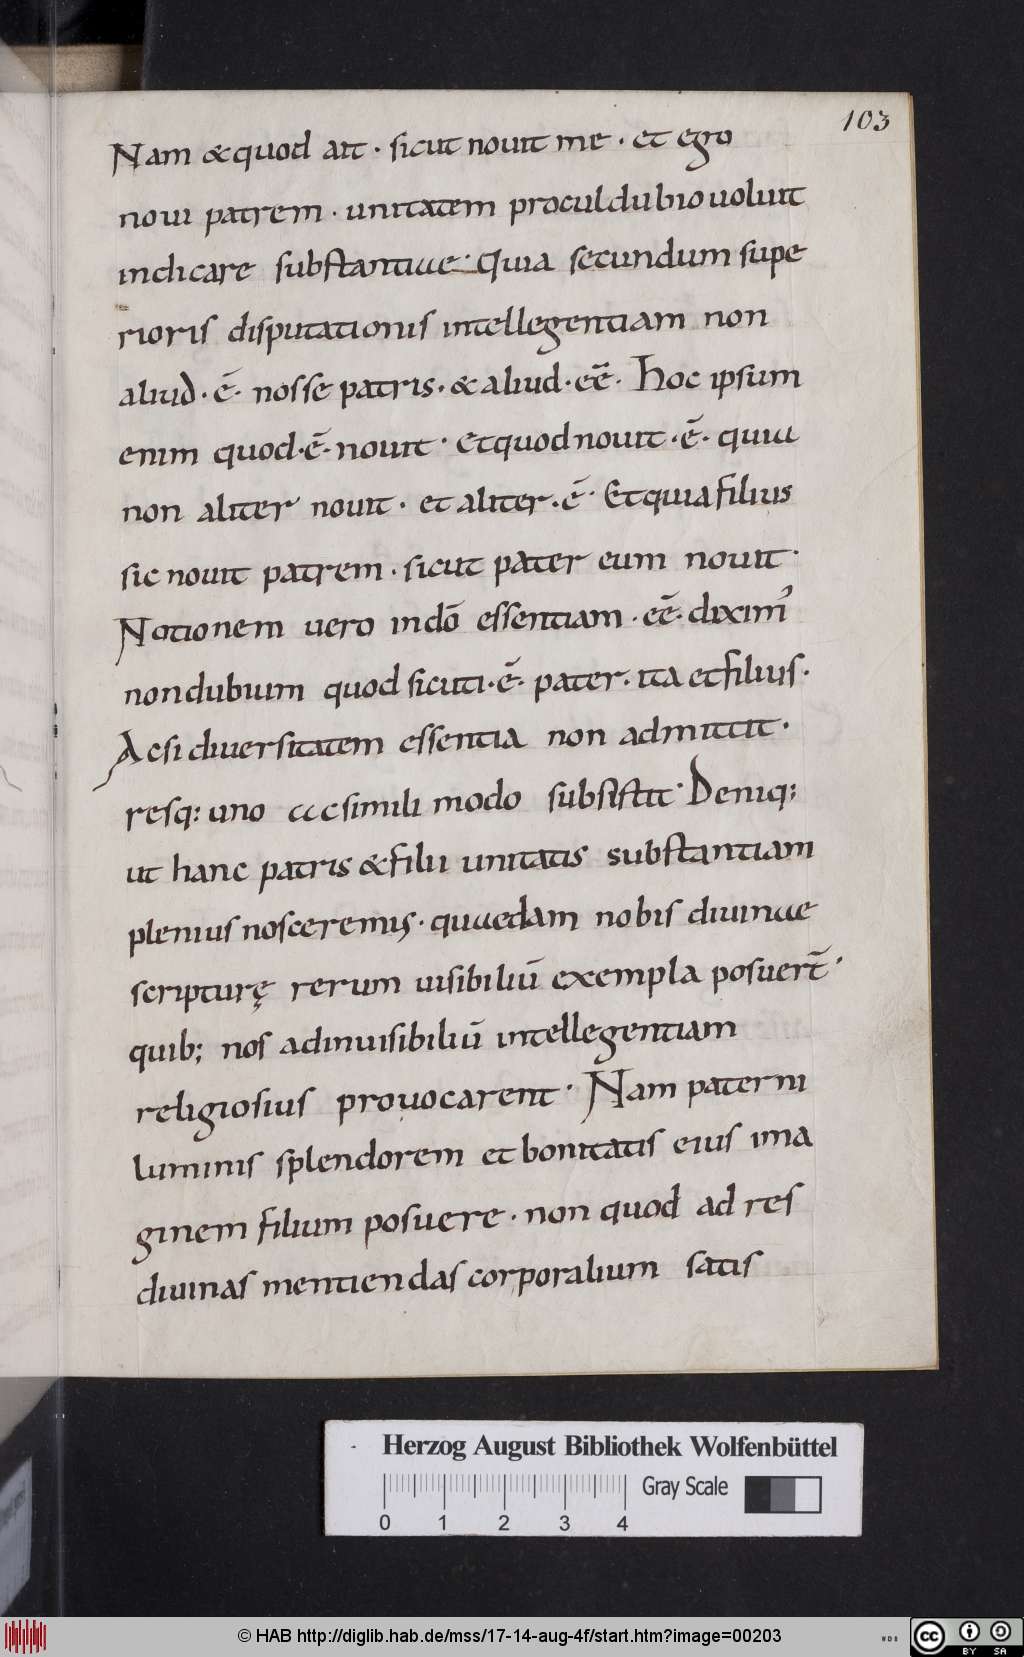 103
Nam & quod ait · sicut nouit me · et ego
noui patrem · unitatem procul dubio uoluit
indicare substantiae · Quia secundum supe
rioris disputationis intellegentiam non
aliud · ē · nosse patris · & aliud · eē · Hoc ipsum
enim quod · ē · nouit · Et quod nouit · ē · quia
non aliter nouit · et aliter · ē · Et quia filius
sic nouit patrem · sicut pater eum nouit ·
Notionem uero in dō essentiam · eē · diximꝰ
non dubium quod sicuti · ē · pater · ita et filius ·
Ac si diuersitatem essentia non admittit ·
resq: uno ac simili modo subsistit · Deniq:
ut hanc patris & filii unitatis substantiam
plenius nosceremus · quaedam nobis diuinae
scripturę rerum uisibiliū exempla posuert̄ ·
quib; nos ad inuisibiliū intellegentiam
religiosius prouocarent · Nam paterni
luminis splendorem et bonitatis eius ima
ginem filium posuere · non quod ad res
diuinas mentiendas corporalium satis
Herzog August Bibliothek Wolfenbüttel
Gray Scale
0 1 2 3 4
© HAB http://diglib.hab.de/mss/17-14-aug-4f/start.htm?image=00203
cc BY SA